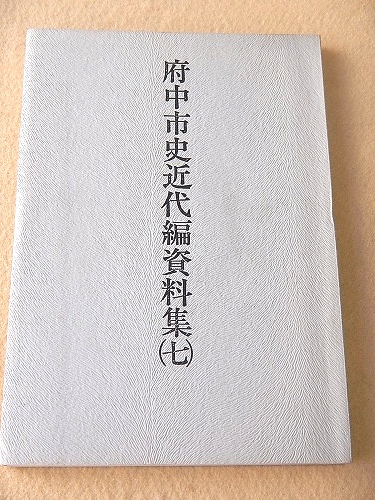 府中市史近代編資料集(七)